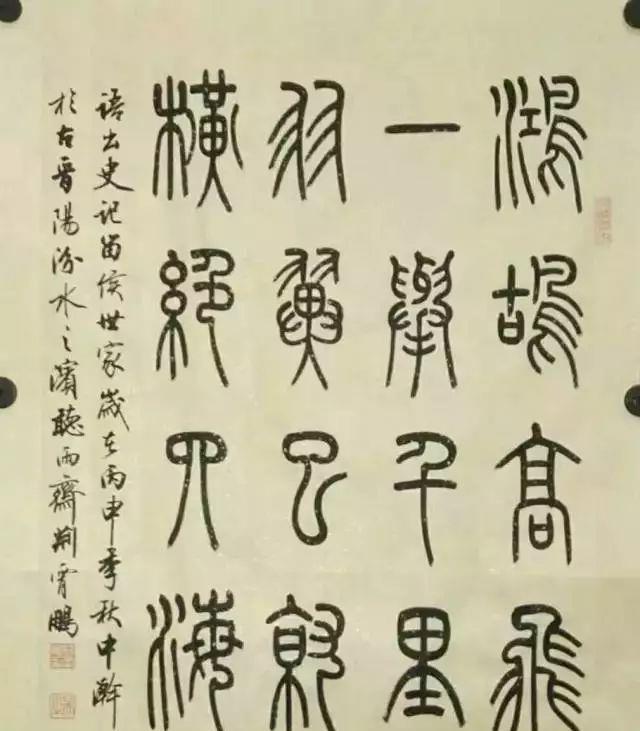 鴻鵠高飛
一舉千里
羽翼已就
橫絕四海
語出史記留侯世家歲在丙申季秋中澣
於古晉陽汾水之濱聽雨齋荊霄鵬